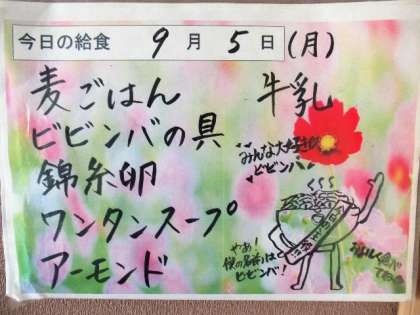 今日の給食 9月5日(月)
麦ごはん 牛乳
ビビンバの具
錦糸卵
ワンタンスープ
アーモンド
みんな大好き
ビビンバ
やぁ!
僕の名前は
ビビンバ!